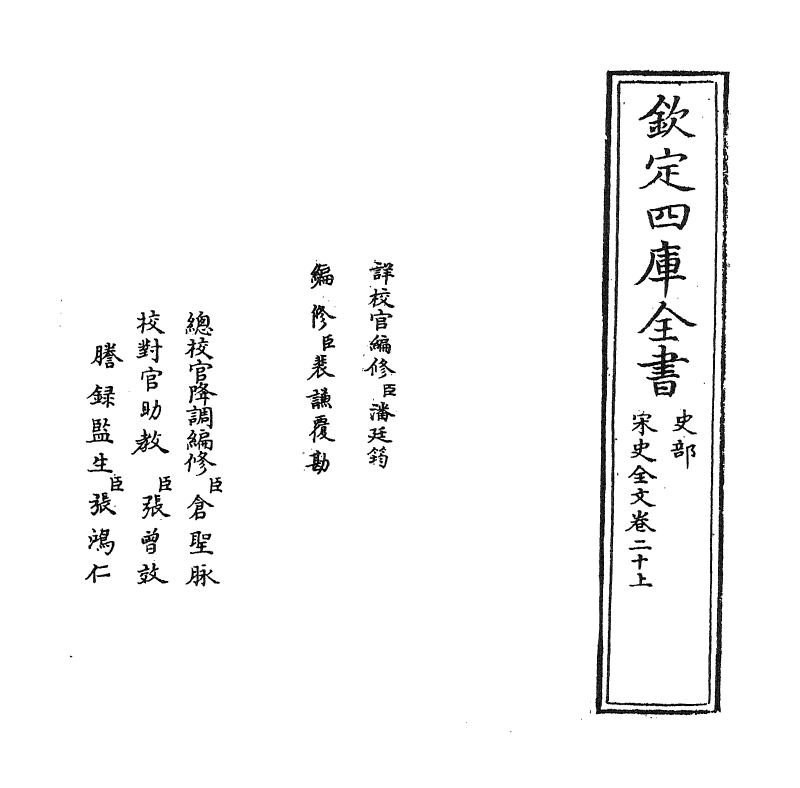 欽定四庫全書
史部
宋史全文卷二十上
詳校官編修臣潘廷筠
編修臣裴謙覆勘
總校官降調編修臣倉聖脉
校對官助教臣張曾效
謄録監生臣張鴻仁